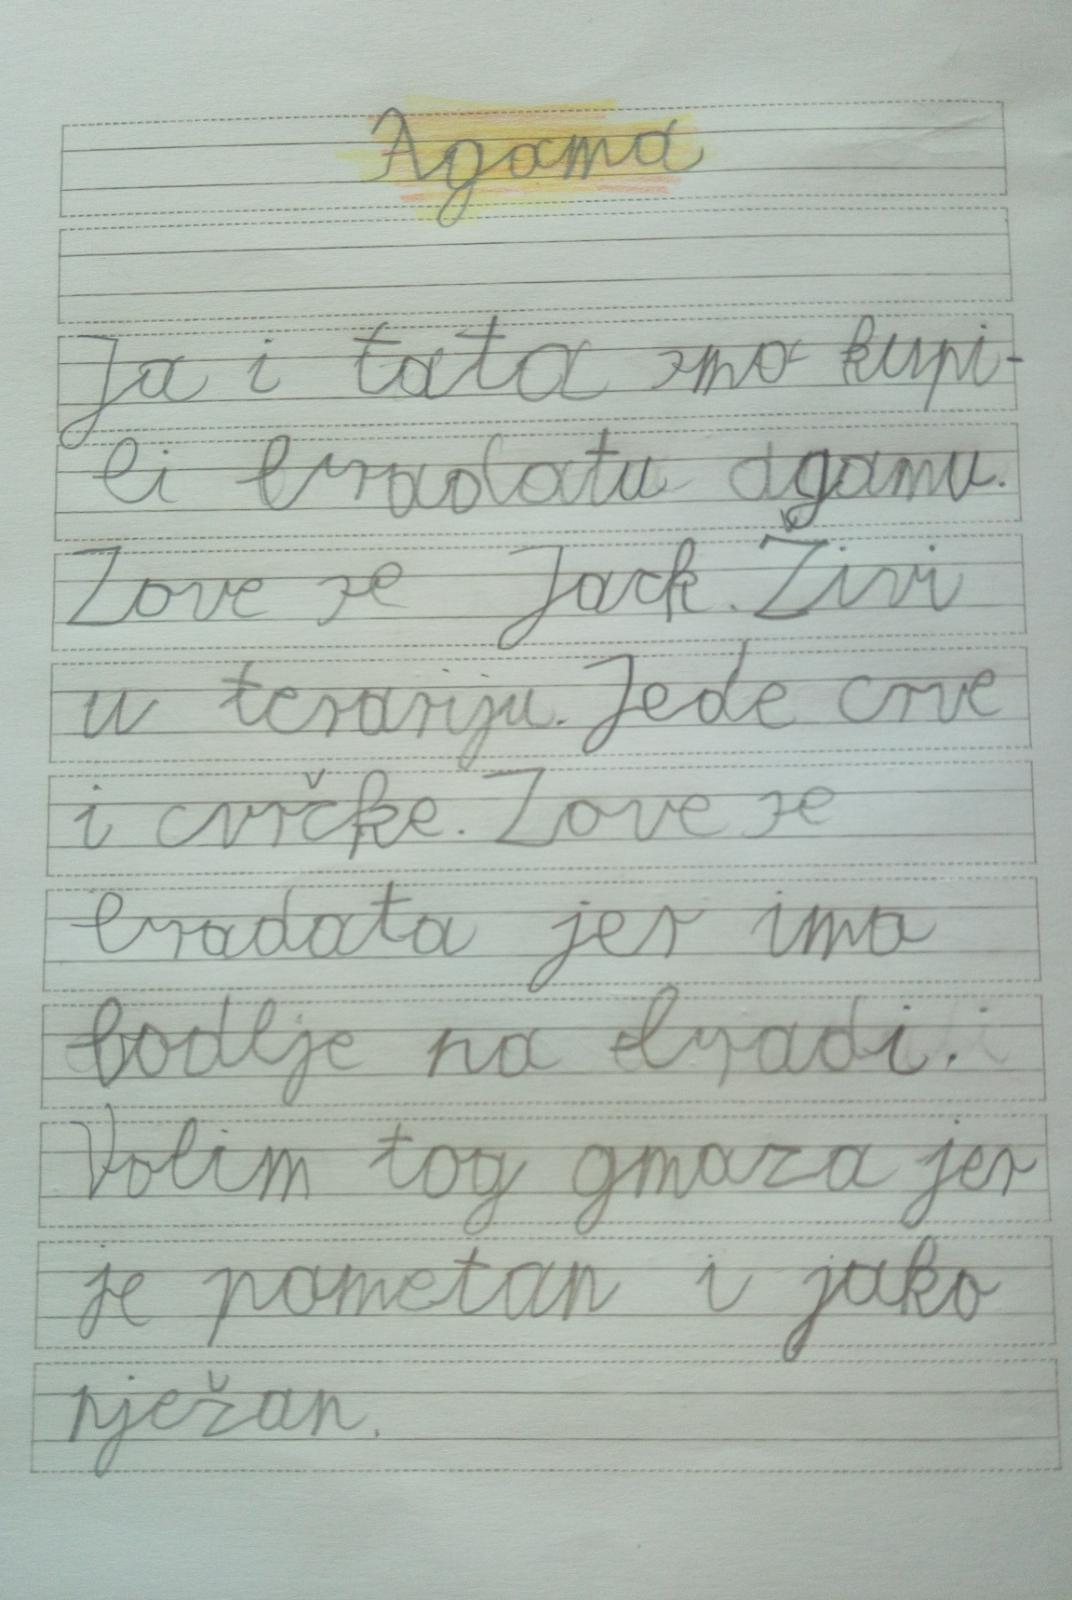 Agama
Ja i tata smo kupi-
li bradatu agamu.
Zove se Jack. Živi
u terariju. Jede crve
i cvrčke. Zove se
bradata jer ima
bodlje na bradi.
Volim tog gmaza jer
je pametan i jako
nježan.